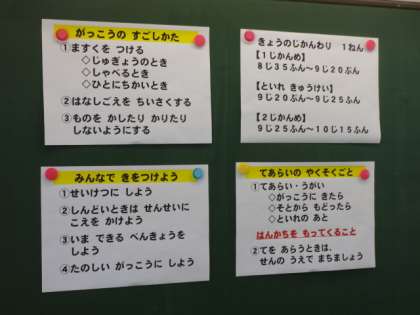 がっこうの すごしかた
①ますくを つける
◇じゅぎょうのとき
◇しゃべるとき
◇ひとにちかいとき
②はなしごえを ちいさくする
③ものを かしたり かりたり
しないようにする
きょうのじかんわり 1ねん
【1じかんめ】
8じ35ふん~9じ20ぷん
【といれ きゅうけい】
9じ20ぷん~9じ25ふん
【2じかんめ】
9じ25ふん~10じ15ふん
みんなで きをつけよう
①せいけつに しよう
②しんどいときは せんせいに
こえを かけよう
③いま できる べんきょうを
しよう
④たのしい がっこうに しよう
てあらいの やくそくごと
①てあらい・うがい
◇がっこうに きたら
◇そとから もどったら
◇といれの あと
はんかちを もってくること
②てを あらうときは、
せんの うえで まちましょう